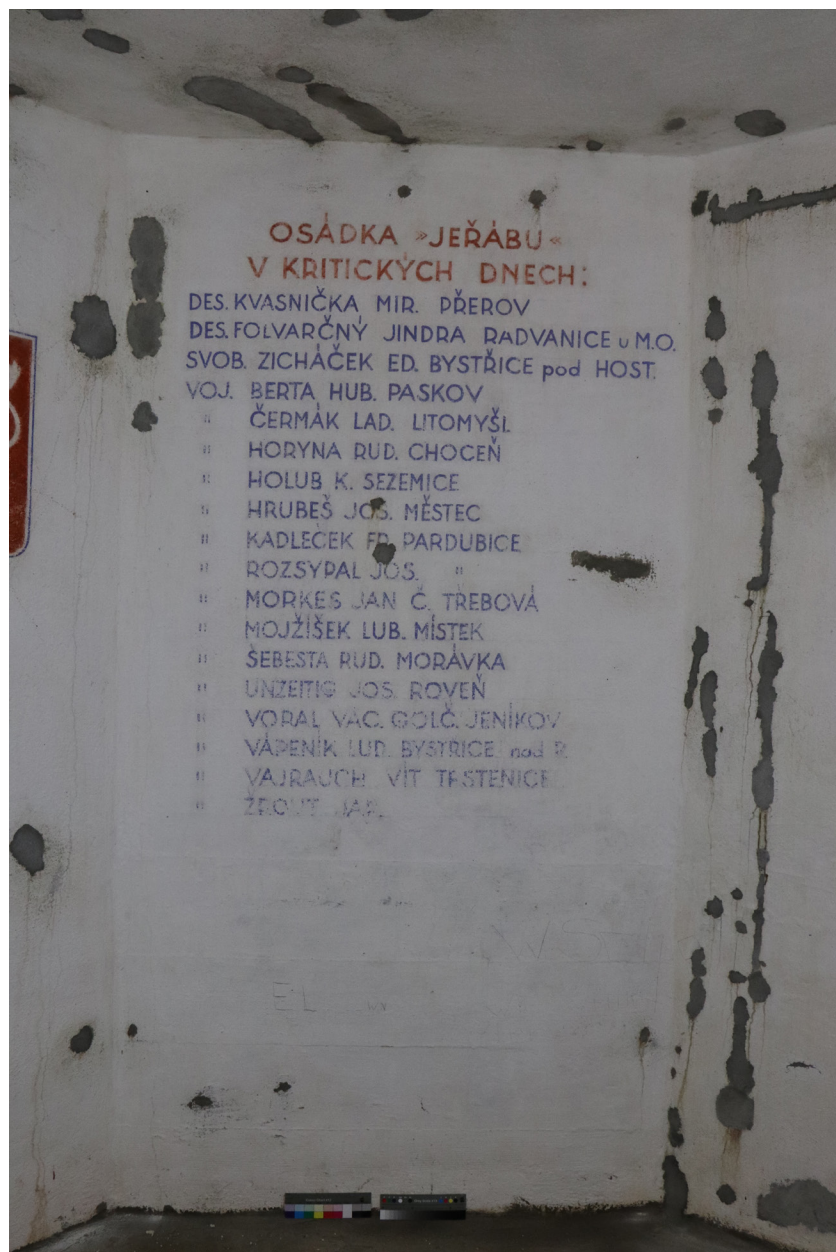 OSÁDKA »JEŘÁBU«
V KRITICKÝCH DNECH:
DES. KVASNIČKA MIR. PŘEROV
DES. FOLVARČNÝ JINDRA RADVANICE u M.O.
SVOB. ZICHÁČEK ED. BYSTŘICE pod HOST.
VOJ. BERTA HUB. PASKOV
" ČERMÁK LAD. LITOMYŠL
" HORYNA RUD. CHOCEŇ
" HOLUB K. SEZEMICE
" HRUBEŠ JOS. MĚSTEC
" KADLEČEK FR. PARDUBICE
" ROZSYPAL JOS. "
" MORKES JAN Č. TŘEBOVÁ
" MOJŽÍŠEK LUB. MÍSTEK
" ŠEBESTA RUD. MORÁVKA
" UNZEITIG JOS. ROVEŇ
" VORAL VÁC. GOLČ. JENÍKOV
" VÁPENÍK LUD. BYSTŘICE nad P.
" VAJRAUCH VÍT TRSTENICE
" ŽROUT JAR.